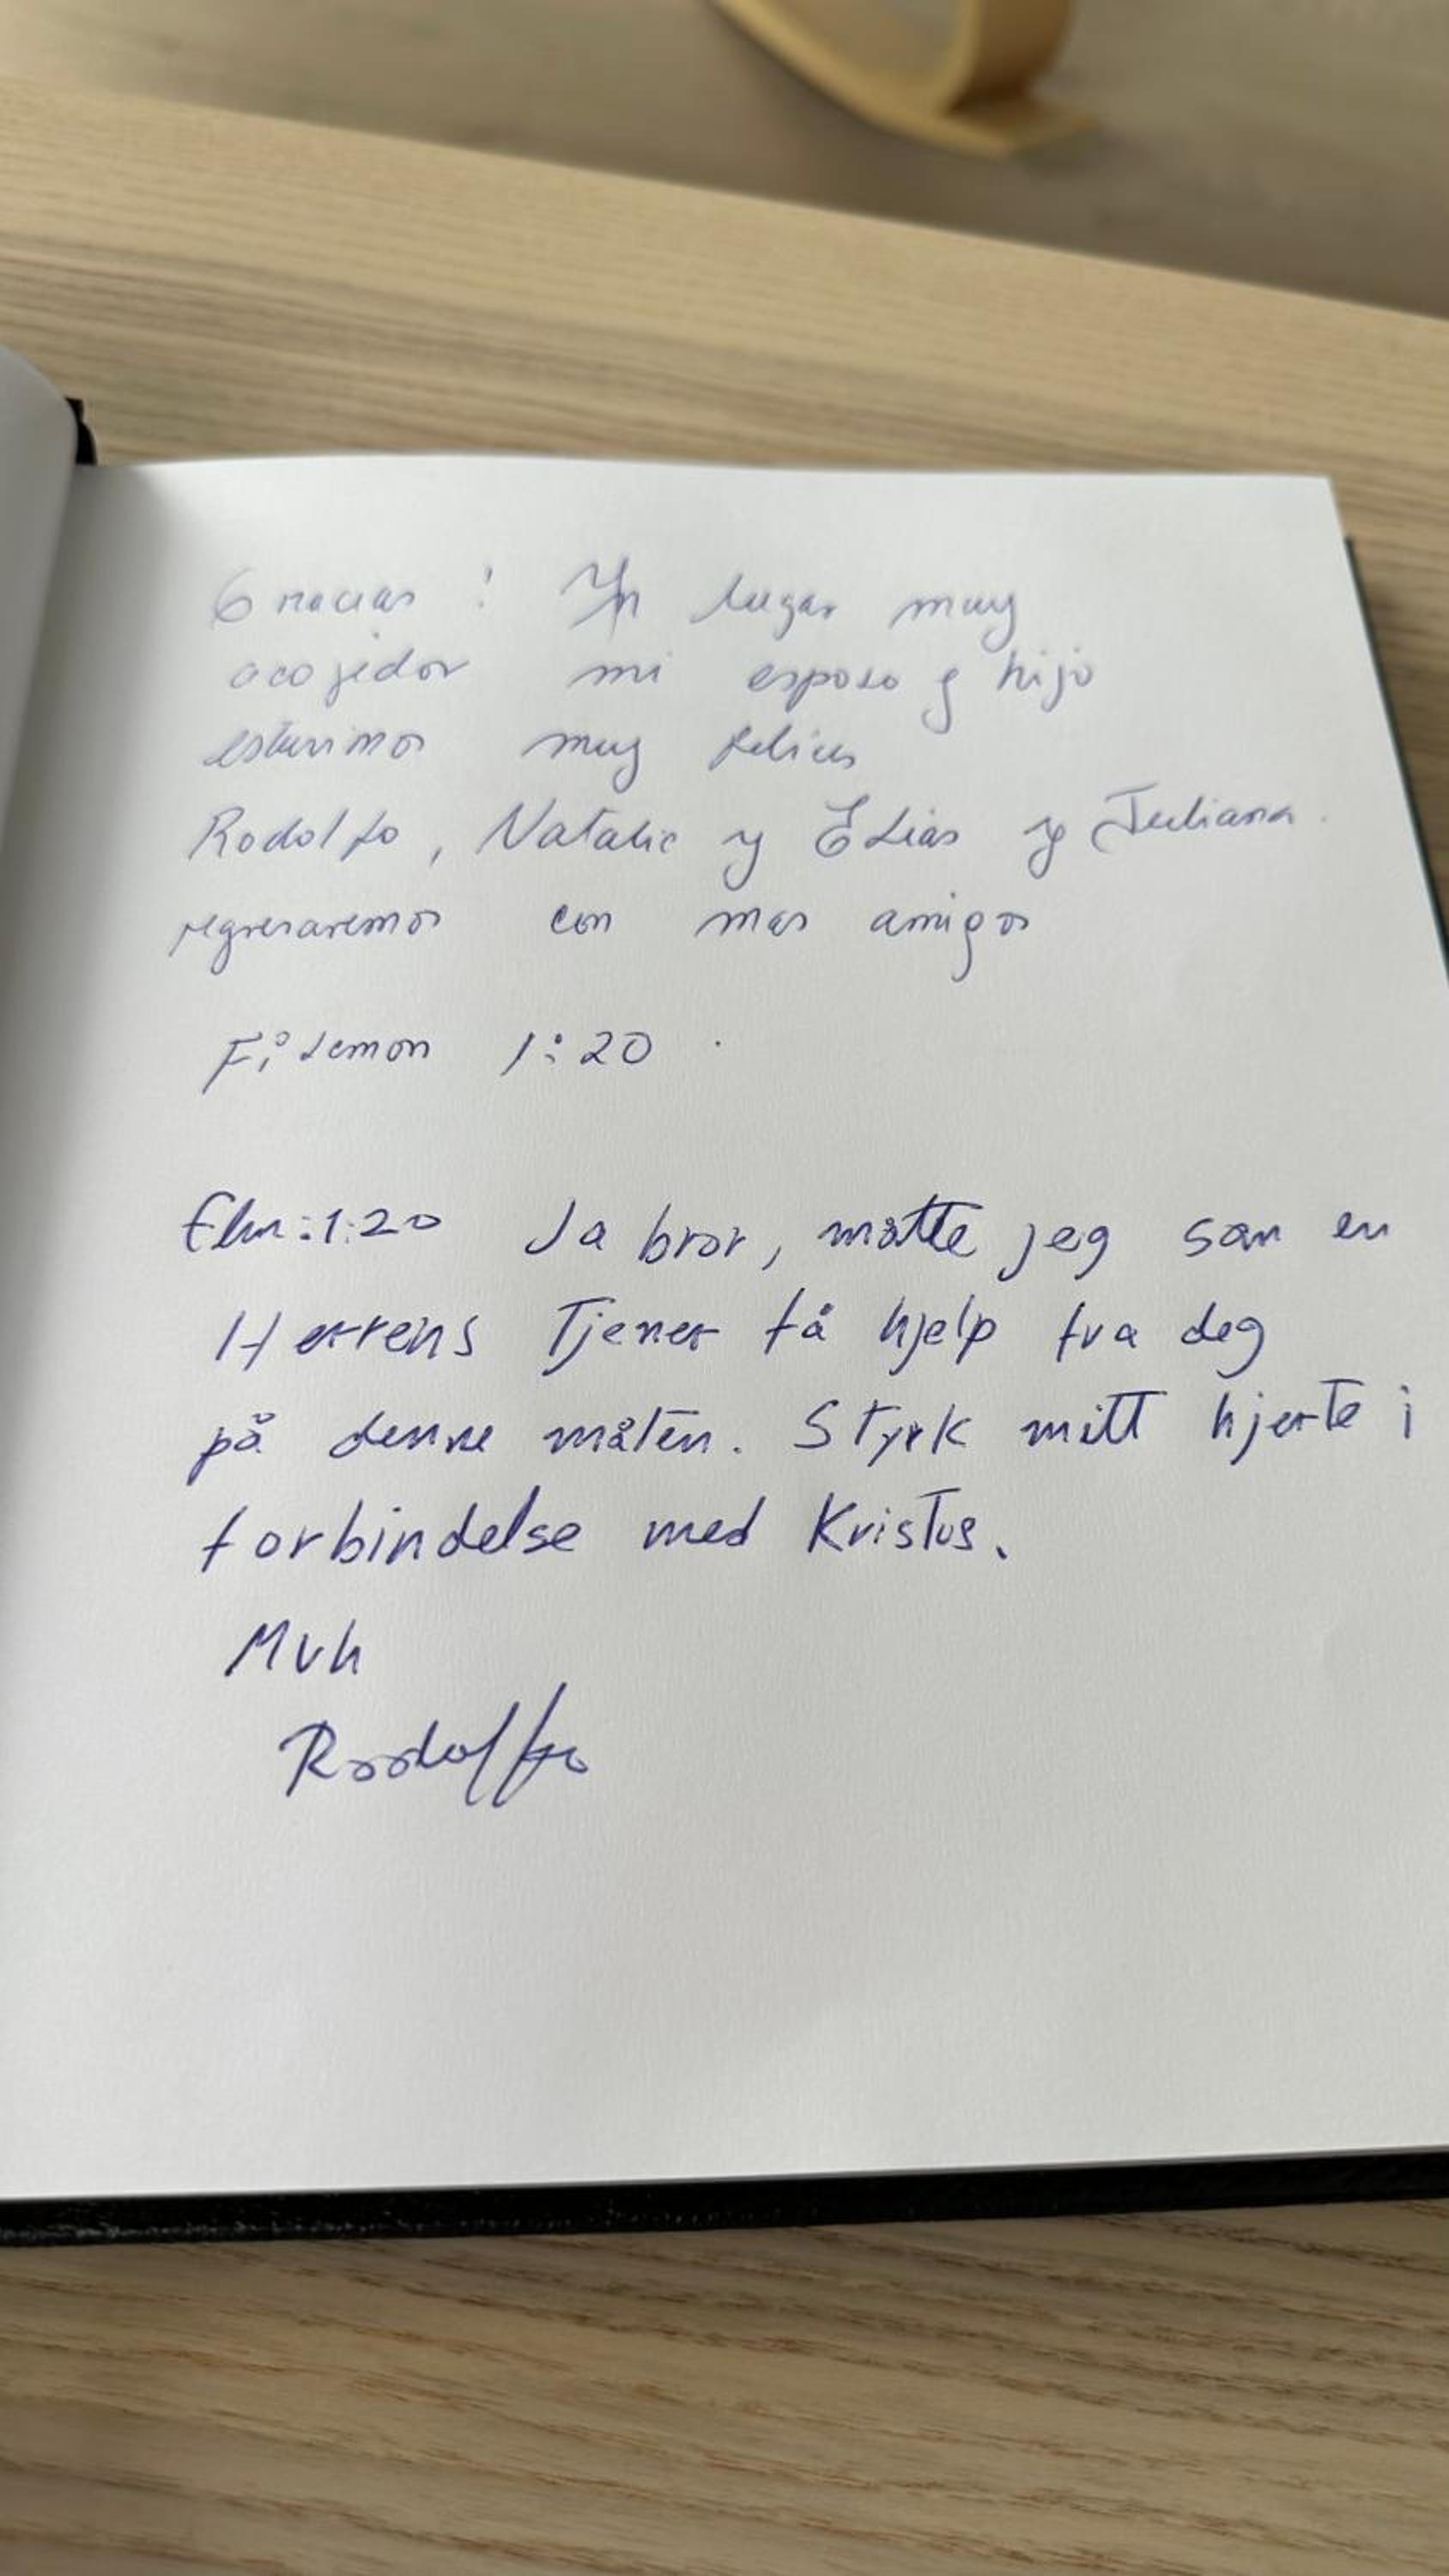 Gracias! Un lugar muy
acojedor mi esposo y hijo
estuvimos muy felices
Rodolfo, Natalie y Elias y Juliana.
regresaremos con mas amigos
Filemon 1:20
Flm:1:20 Ja bror, måtte jeg som en
Herrens Tjener få hjelp fra deg
på denne måten. Styrk mitt hjerte i
forbindelse med Kristus.
Mvh
Rodolfo